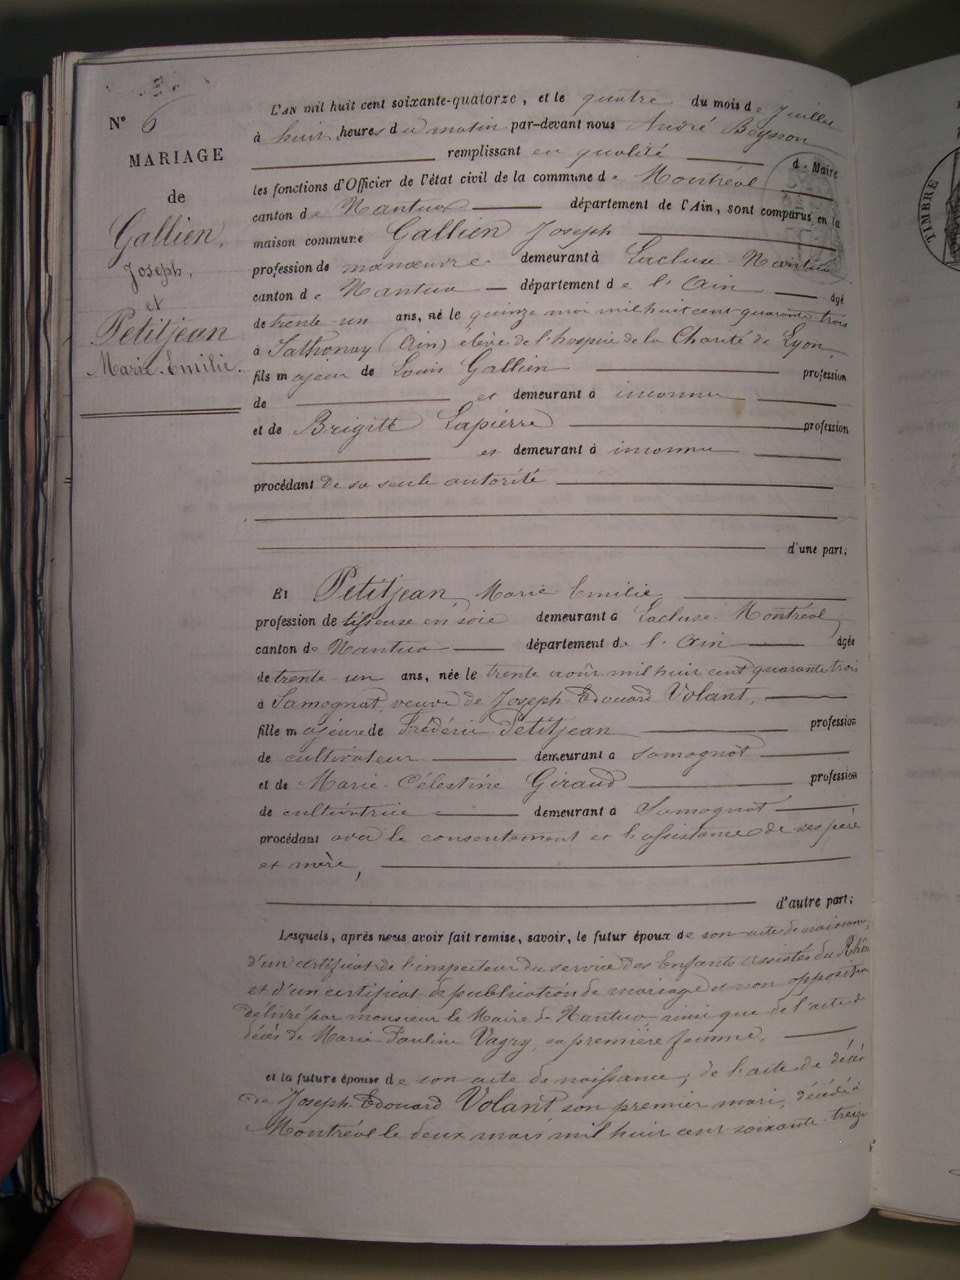 N° 6
MARIAGE
de
Gallien,
Joseph,
et
Petitjean
Marie-Emilie.
L'AN mil huit cent soixante-quatorze, et le quatre du mois de Juillet
à huit heures du matin par-devant nous André Beysson
remplissant en qualité de Maire
les fonctions d'Officier de l'état civil de la commune de Montréal
canton de Nantua département de l'Ain, sont comparus, en la
maison commune Gallien Joseph
profession de manœuvre demeurant à Lacluse-Nantua
canton de Nantua département de l'Ain âgé
de trente-un ans, né le quinze mai mil huit cent quarante trois
à Sathonay (Ain) élève de l'hospice de la Charité de Lyon,
fils majeur de Louis Gallien profession
de et demeurant à inconnu
et de Brigitt Lapierre profession
et demeurant à inconnu
procédant de sa seule autorité
d'une part;
Et Petitjean, Marie Emilie,
profession de tisseuse en soie demeurant à Lacluse-Montréal,
canton de Nantua département de l'Ain âgée
de trente-un ans, née le trente août mil huit cent quarante trois
à Samognat, veuve de Joseph-Edouard Volant,
fille majeure de Frédéric Petitjean profession
de cultivateur demeurant à Samognat
et de Marie-Célestine Giraud profession
de cultivatrice demeurant à Samognat
procédant avec le consentement et l'assistance de ses père
et mère,
d'autre part;
Lesquels, après nous avoir fait remise, savoir, le futur époux de son acte de naissance,
d'un certificat de l'inspecteur du service des Enfants assistés du Rhône
et d'un certificat de publication de mariage et non opposition
délivré par monsieur le Maire de Nantua ainsi que de l'acte de
décès de Marie Pauline Vagry, sa première femme,
et la future épouse de son acte de naissance; de l'acte de décès
de Joseph-Edouard Volant son premier mari, décédé à
Montréal le deux mars mil huit cent soixante-treize
TIMBRE